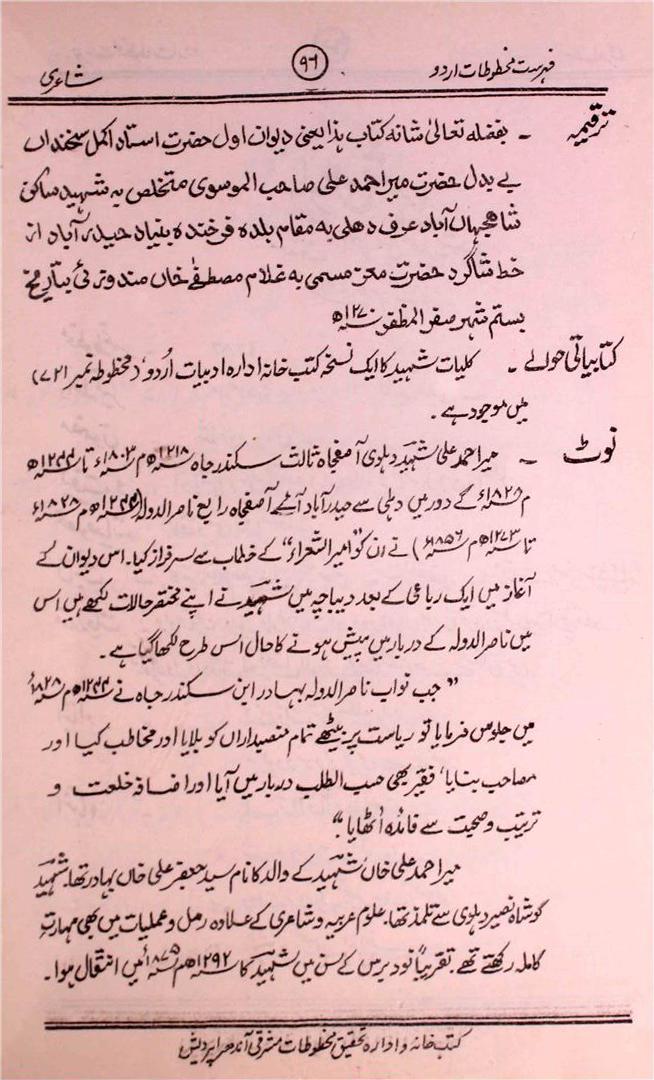 فہرست مخطوطات اردو
۹۶
شاعری
ترقیمہ ۔ بفضلہ تعالیٰ شانہ کتاب ہذا یعنی دیوان اول حضرت استاد اکمل سخنداں
بے بدل حضرت میر احمد علی صاحب الموسوی متخلص بہ شہید ساکن
شاہجہاں آباد عرف دھلی بہ مقام بلدہ فرخندہ بنیاد حیدرآباد از
خط شاگرد حضرت معز مسمی بہ غلام مصطفےٰ خاں مندوزئی بتاریخ
بستم شہر صفر المظفر ۱۲۷۰ھ
کتابیاتی حوالے ۔ کلیات شہید کا ایک نسخہ کتب خانہ ادارہ ادبیات اُردو، (مخطوطہ نمبر ۷۲۱)
میں موجود ہے ۔
نوٹ ۔ میر احمد علی شہید دہلوی آصفجاہ ثالث سکندر جاہ ۱۲۱۸ھ م ۱۸۰۳ء تا ۱۲۴۴ھ
م ۱۸۲۸ء کے دور میں دہلی سے حیدرآباد آئے آصفجاہ رابع ناصر الدولہ (۱۲۴۴ھ م ۱۸۲۸ء
تا ۱۲۷۳ھ م ۱۸۵۶ء) نے ان کو "امیر الشعراء" کے خطاب سے سرفراز کیا۔ اس دیوان کے
آغاز میں ایک رباعی کے بعد دیباچہ میں شہید نے اپنے مختصر حالات لکھے ہیں اس
میں ناصر الدولہ کے دربار میں پیش ہونے کا حال اس طرح لکھا گیا ہے ۔
" جب نواب ناصر الدولہ بہادر ابن سکندر جاہ نے ۱۲۴۴ھ م ۱۸۲۸ء
میں جلوس فرمایا تو ریاست پر بیٹھے تمام منصبداراں کو بلایا اور مخاطب کیا اور
مصاحب بنایا، فقیر بھی حسب الطلب دربار میں آیا اور اضافہ خلعت و
تربیت و صحبت سے فائدہ اُٹھایا ۔"
میر احمد علی خاں شہید کے والد کا نام سید جعفر علی خاں بہادر تھا۔ شہید
کو شاہ نصیر دہلوی سے تلمذ تھا۔ علوم عربیہ و شاعری کے علاوہ رمل و عملیات میں بھی مہارت
کاملہ رکھتے تھے۔ تقریباً نود برس کے سن میں شہید کا ۱۲۹۲ھ م ۱۸۷۵ء میں انتقال ہوا ۔
کتب خانہ و ادارہ تحقیق مخطوطات مشرقی آندھرا پردیش